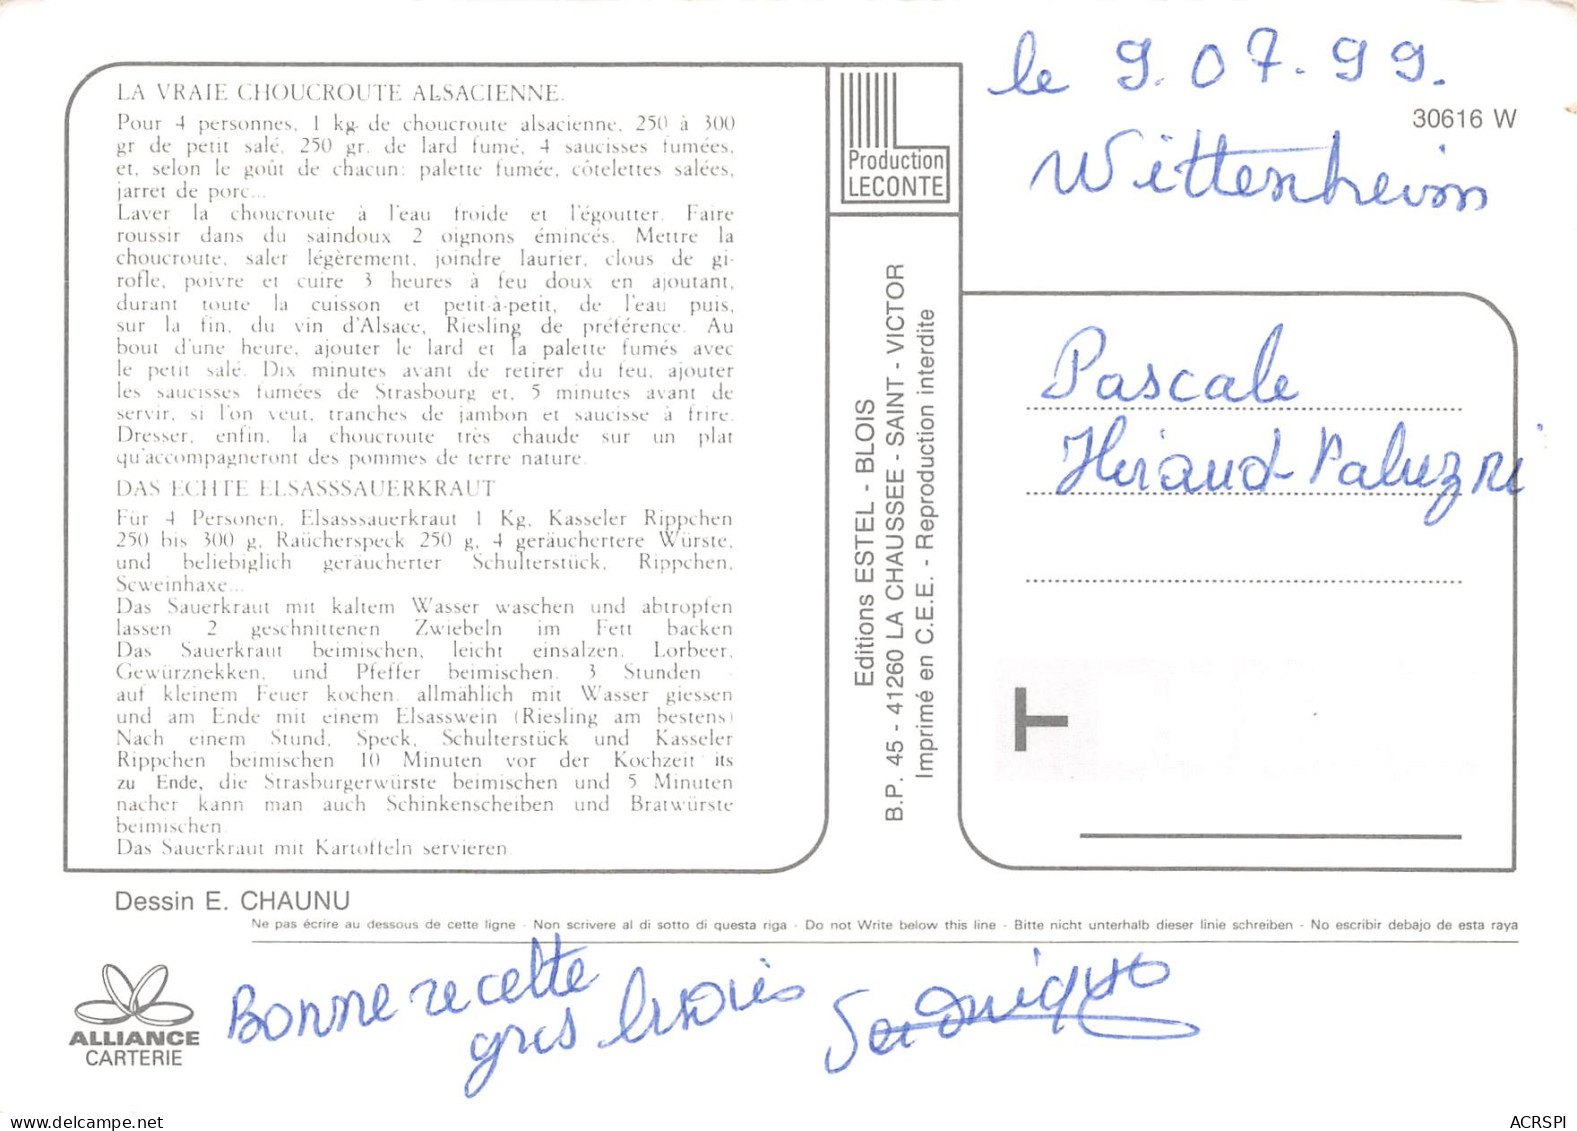 le 9.07.99.
30616 W
Wittenheim
LA VRAIE CHOUCROUTE ALSACIENNE.
Pour 4 personnes, 1 kg. de choucroute alsacienne, 250 à 300
gr de petit salé, 250 gr. de lard fumé, 4 saucisses fumées,
et, selon le goût de chacun: palette fumée, côtelettes salées,
jarret de porc...
Laver la choucroute à l'eau froide et l'égoutter. Faire
roussir dans du saindoux 2 oignons émincés. Mettre la
choucroute, saler légèrement, joindre laurier, clous de gi-
rofle, poivre et cuire 3 heures à feu doux en ajoutant,
durant toute la cuisson et petit-à-petit, de l'eau puis,
sur la fin, du vin d'Alsace, Riesling de préférence. Au
bout d'une heure, ajouter le lard et la palette fumés avec
le petit salé. Dix minutes avant de retirer du feu, ajouter
les saucisses fumées de Strasbourg et, 5 minutes avant de
servir, si l'on veut, tranches de jambon et saucisse à frire.
Dresser, enfin, la choucroute très chaude sur un plat
qu'accompagneront des pommes de terre nature.
DAS ECHTE ELSASSSAUERKRAUT
Für 4 Personen, Elsasssauerkraut 1 Kg, Kasseler Rippchen
250 bis 300 g, Raücherspeck 250 g, 4 geräuchertere Würste,
und beliebiglich geräucherter Schulterstück, Rippchen,
Scweinhaxe...
Das Sauerkraut mit kaltem Wasser waschen und abtropfen
lassen 2 geschnittenen Zwiebeln im Fett backen
Das Sauerkraut beimischen, leicht einsalzen. Lorbeer,
Gewürznekken, und Pfeffer beimischen. 3 Stunden
auf kleinem Feuer kochen, allmählich mit Wasser giessen
und am Ende mit einem Elsasswein (Riesling am bestens)
Nach einem Stund, Speck, Schulterstück und Kasseler
Rippchen beimischen 10 Minuten vor der Kochzeit its
zu Ende, die Strasburgerwürste beimischen und 5 Minuten
nacher kann man auch Schinkenscheiben und Bratwürste
beimischen.
Das Sauerkraut mit Kartoffeln servieren.
Production
LECONTE
Editions ESTEL - BLOIS
B.P. 45 - 41260 LA CHAUSSEE - SAINT - VICTOR
Imprimé en C.E.E. - Reproduction interdite
Pascale
Hiraud-Paluzni
T
Dessin E. CHAUNU
Ne pas écrire au dessous de cette ligne - Non scrivere al di sotto di questa riga - Do not Write below this line - Bitte nicht unterhalb dieser linie schreiben - No escribir debajo de esta raya
ALLIANCE
CARTERIE
Bonne recette
gros bisous
ACRSPI